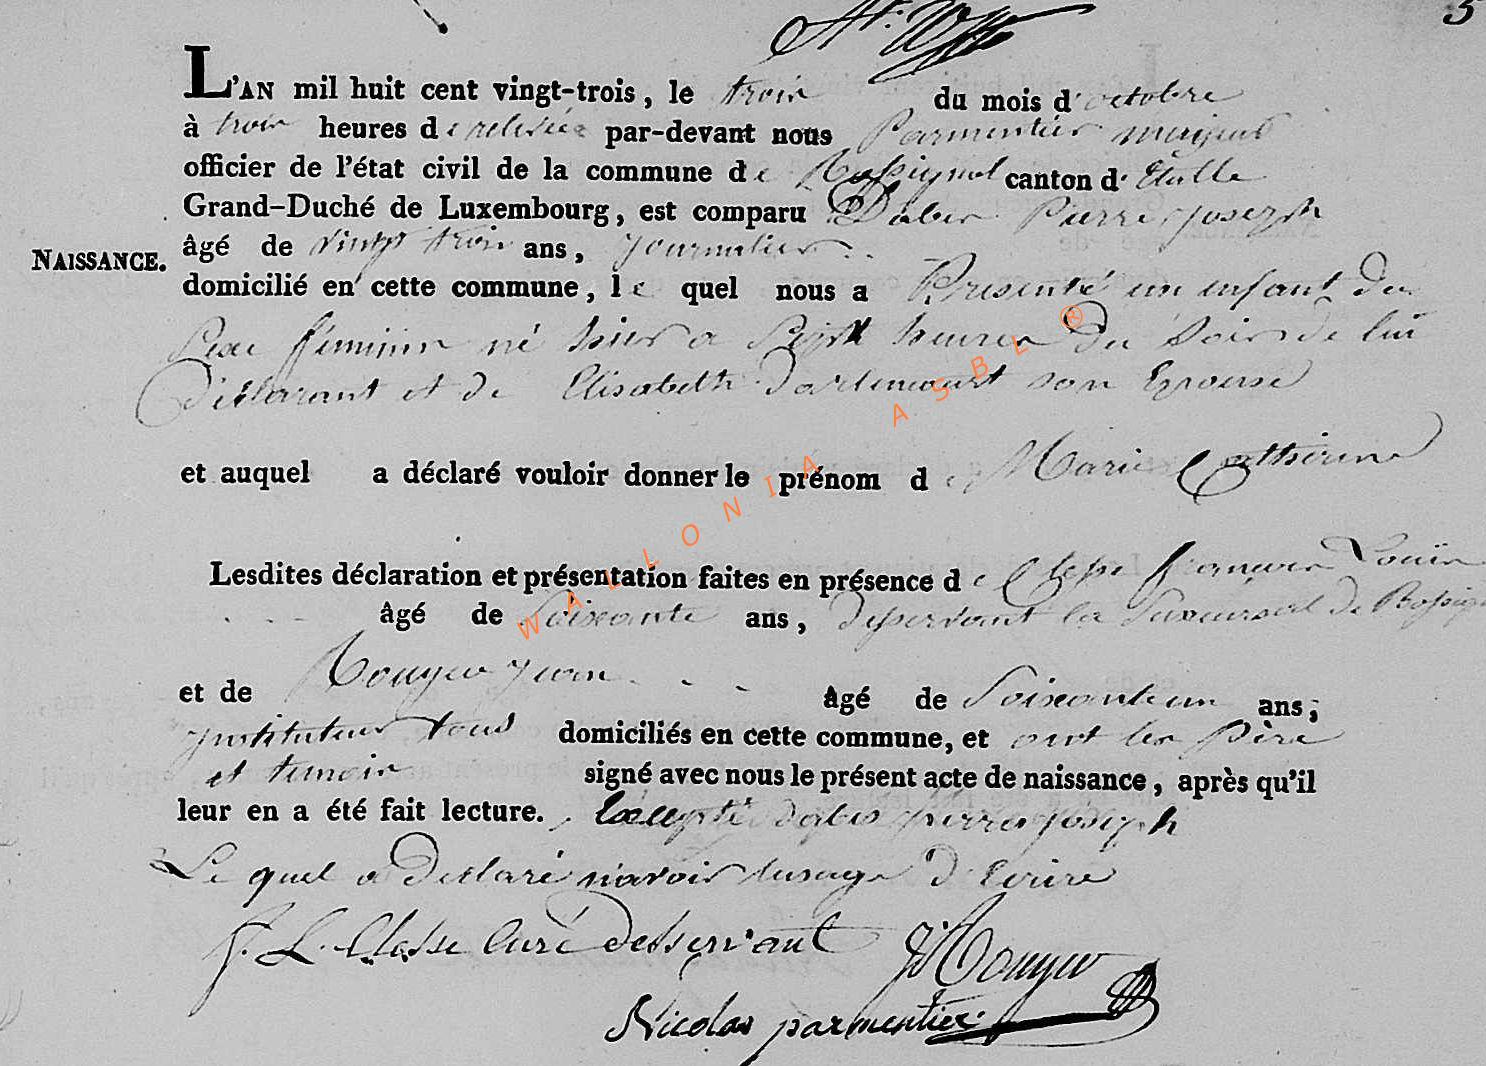 5
L'AN mil huit cent vingt-trois, le trois du mois d'octobre
à trois heures de relevée par-devant nous Parmentier
officier de l'état civil de la commune de Rossignol canton d'Etalle
Grand-Duché de Luxembourg, est comparu Dabe Pierre joseph
NAISSANCE.
âgé de vingt trois ans, journalier
domicilié en cette commune, le quel nous a Presenté un enfant du
Sexe féminin né hier a Sept heures du Soir de lui
Déclarant et de Elisabeth darlencourt son Epouse
et auquel a déclaré vouloir donner le prénom de Marie Catherine
Lesdites déclaration et présentation faites en présence de françois Louis
âgé de Soixante ans, desservant la Sucursal de Rossig
et de Rouyer jean âgé de Soixante un ans,
jnstituteur tous domiciliés en cette commune, et ont les Père
et temoin signé avec nous le présent acte de naissance, après qu'il
leur en a été fait lecture. pierre joseph
Le quel a declaré n'avoir lusage d'Ecrire
f. L. Curé desservant J Rouyer
Nicolas parmentier
WALLONIA ASBL ®